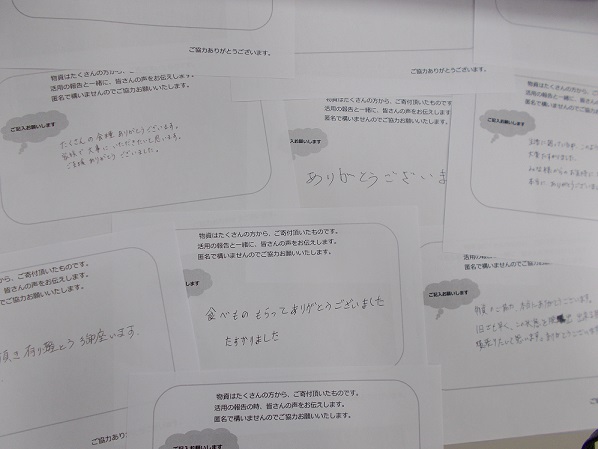 ご協力ありがとうございます。
ご協力ありがとうございます。
物資はたくさんの方から、ご寄付頂いたものです。
活用の報告と一緒に、皆さんの声をお伝えします。
匿名で構いませんのでご協力お願いいたします。
ご記入お願いします
たくさんの食糧ありがとうございます。
家族で大事にいただきたいと思います。
ご支援ありがとうございました。
物資はたくさんの方から、ご寄付頂いたもので
活用の報告と一緒に、皆さんの声をお伝えしま
匿名で構いませんのでご協力お願いいたします
入お願いします
ありがとうございま
物資はたくさんの方から、
活用の報告と一緒に、皆
匿名で構いませんのでご
ご記入お願いします
大変たすかりました。
ご寄付頂いたものです。
皆さんの声をお伝えします。
ご協力お願いいたします。
頂き有り難とう御座います。
ご協力あり
物資はたくさんの方から、ご寄付頂いたものです。
活用の報告と一緒に、皆さんの声をお伝えします。
匿名で構いませんのでご協力お願いいたします。
食べもの もらってありがとうございました
たすかりました
活用の報
匿名で構いませんのでご協力お願いいたし
ご記入お願いします
物資はたくさんの方から、ご寄付頂いたものです。
活用の報告の時、皆さんの声をお伝えします。
匿名で構いませんのでご協力お願いいたします。
ご記入お願いします
ご協力ありがとうございます。